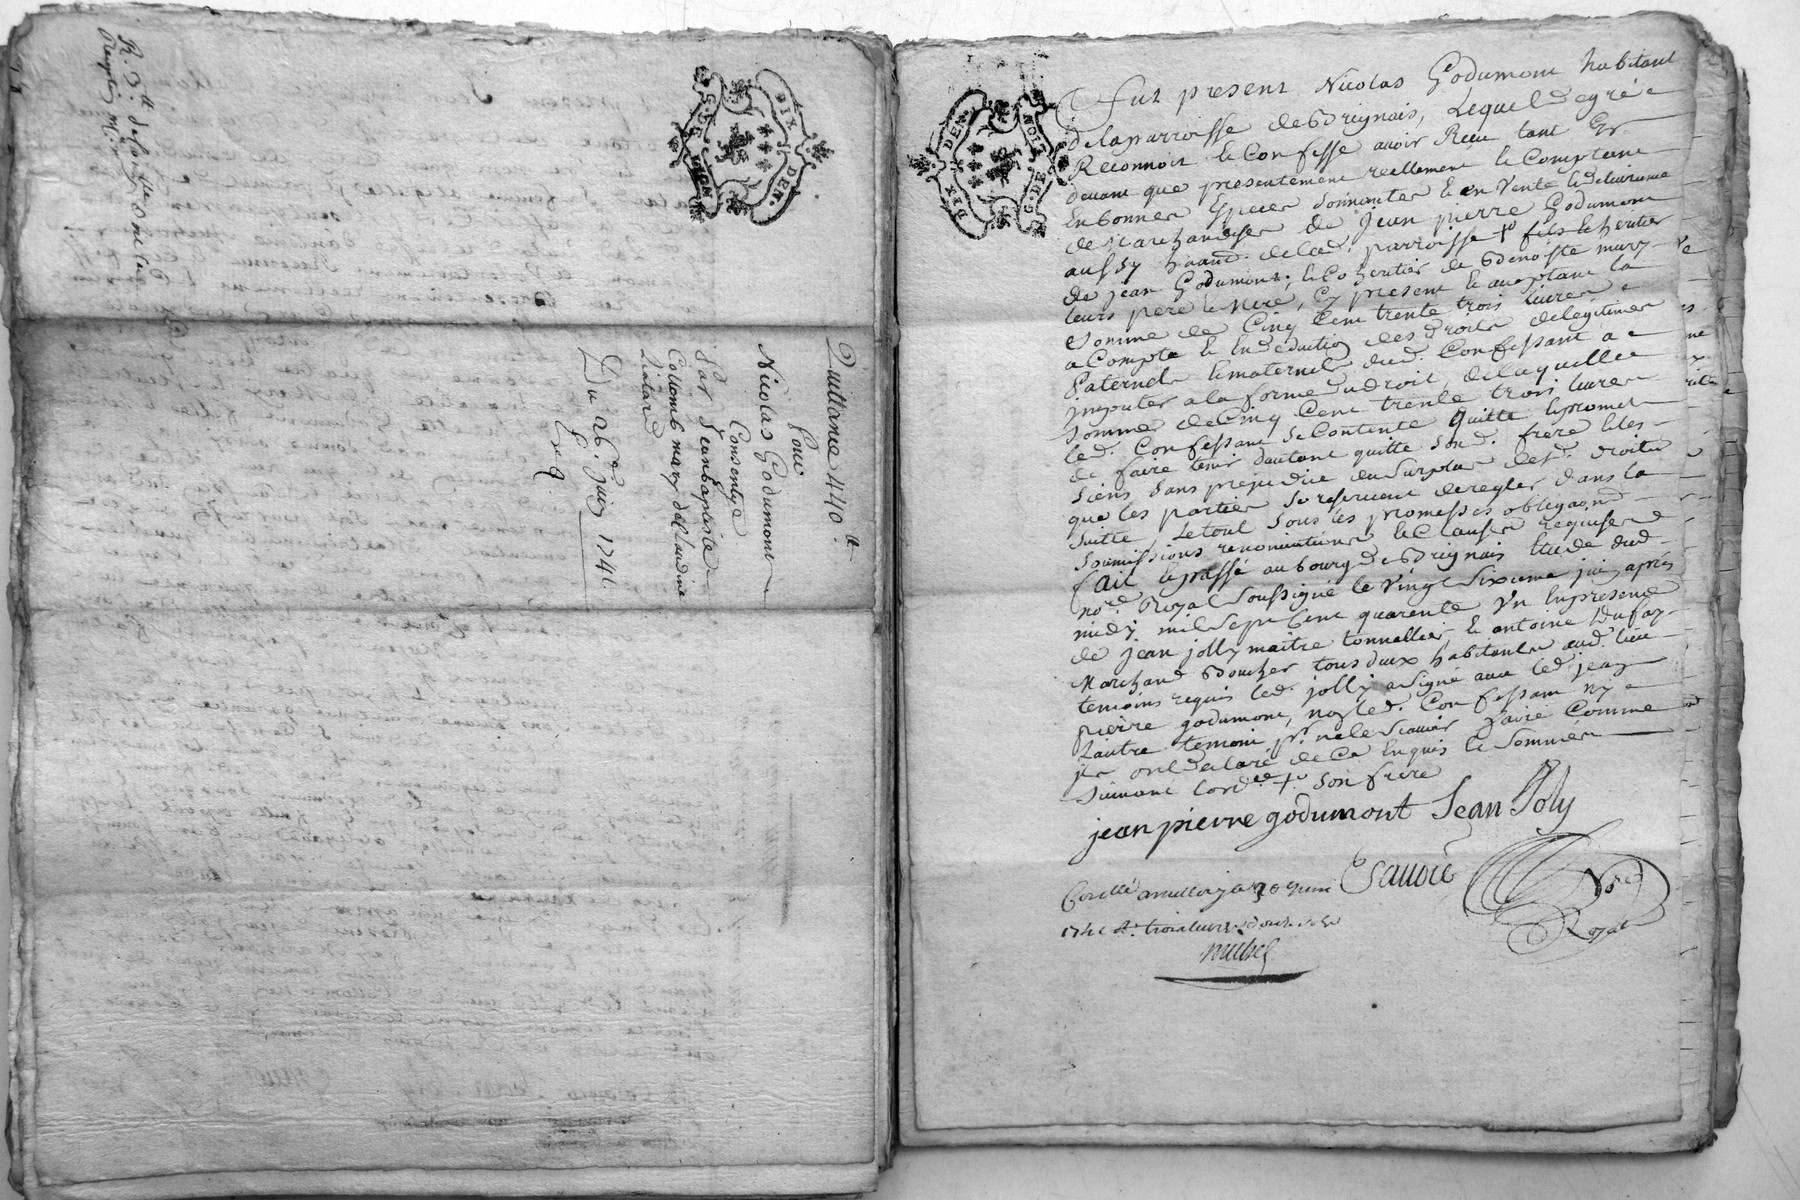 R. 3ᵗᵗ
Quittance 440ᵗᵗ
Pour
Nicolas Godumont
Consentye
Par Jeanbaptiste
Collomb mary de Claudine
Du 26ᵉ Juin 1741
DIX DEN.
G. DE LION
DIX DEN.
G. DE LION
Fut present Nicolas Godumont habitant
de la parroisse de Brignais, Lequel de gré
Reconnoit & Confesse avoir Receu tant cy
devant que presentement reellement & Comptant
En bonnes Especes sonnantes & en vente & delivrance
de marchandises de Jean pierre Godumont
aussy habitant de lad. parroisse + fils & heritier
de jean Godumont, & Coheritier de Benoiste mary
leurs pere & Mere, Cy present & acceptant la
somme de Cinq Cent trente trois livres
a Compte & En deduction des Droits de legitimes
Paternels & maternels dud. Confessant a
imputer a la forme du droit, de laquelle
somme de Cinq Cent trente trois livres
led. Confessant se Contente quitte & promet
de faire tenir dautant quitte sond. frere & les
siens sans prejudice du Surplus desd. droits
que les parties se reservent de regler dans la
suitte Le tout sous les promesses obligaōns
soumissions renonciations & Clauses requises
fait & passé au bourg de Brignais Etude dud.
noʳᵉ Royal soussigné le vingt sixieme juin après
midy mil sept Cent quarente Un En presence
de jean jolly maitre tonnellier, & antoine Dufay
Marchand Boucher tous deux habitants aud. lieu
temoins requis led. jolly a signé avec led. jean
pierre godumont, non led. Confessant ny
Lautre temoin pʳ ne le scavoir faire Comme
ils ont declaré de Ce Enquis & Sommés
suivant Lordᶜᵉ + son frere
jean pierre godumont Jean Joly
Esauoié Noʳᵉ
Royal
1741 Rˢ trois livres douze sols